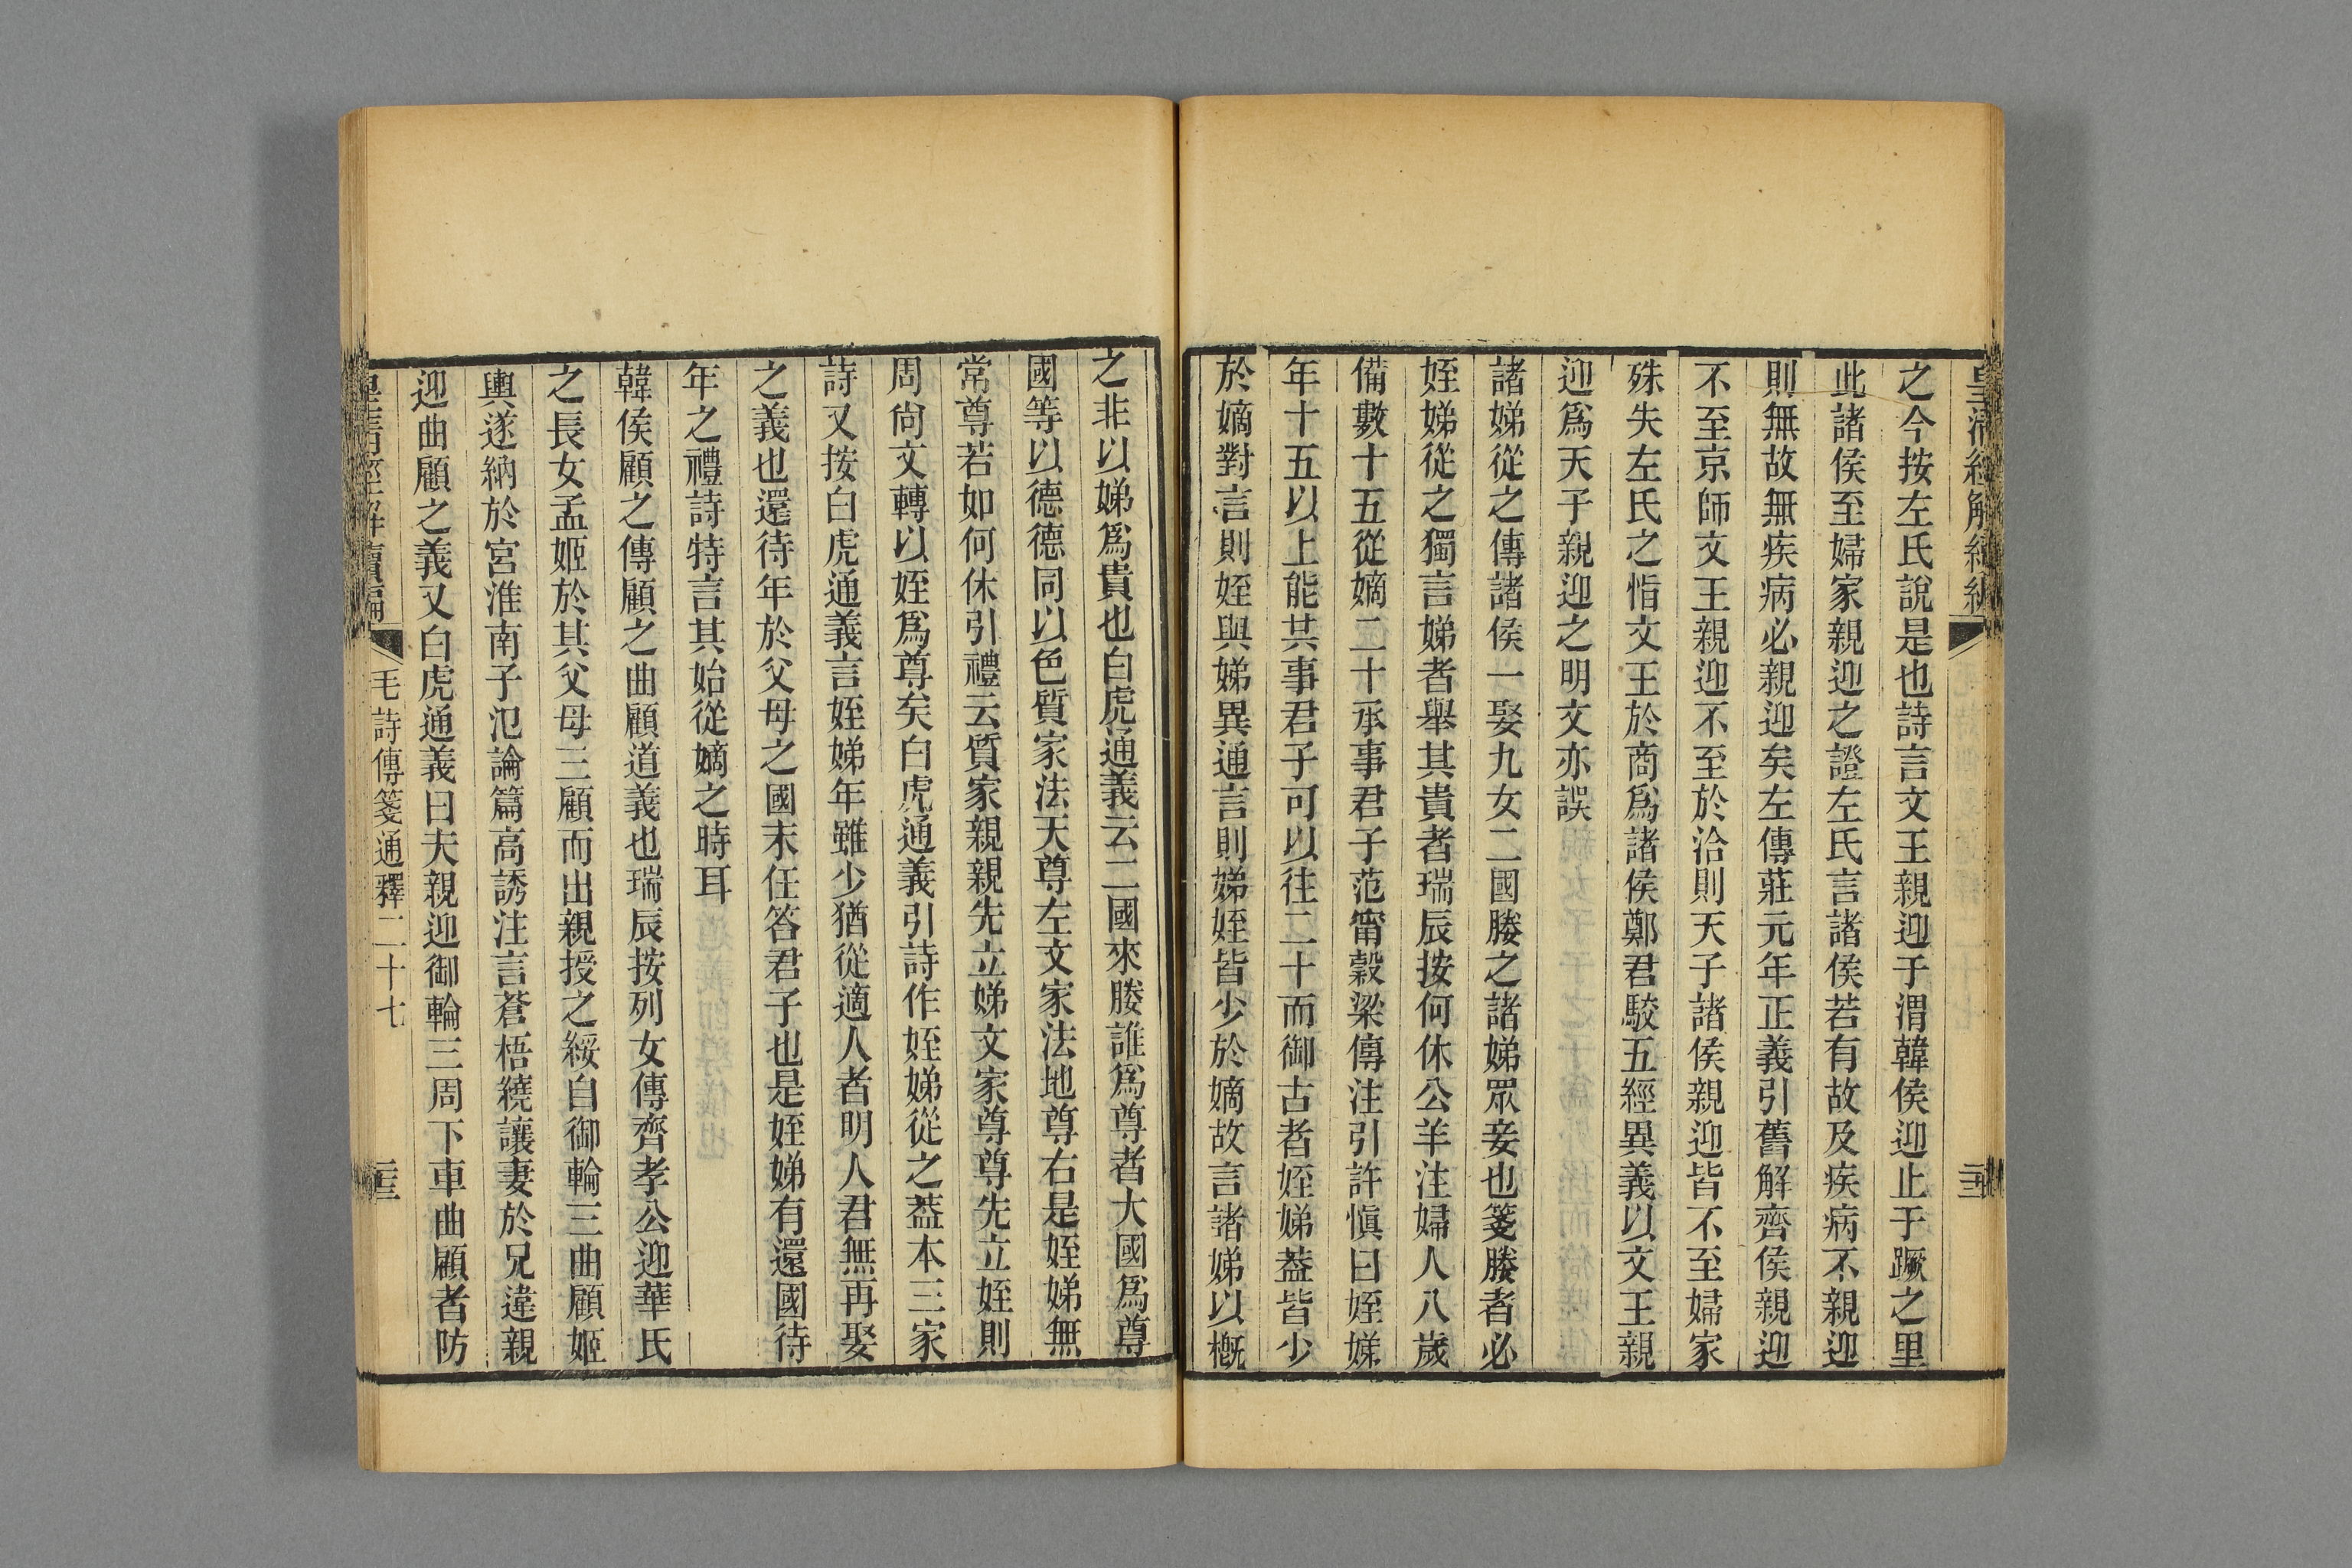 皇清經解續編
之今按左氏說是也詩言文王親迎于渭韓侯迎止于蹶之里
此諸侯至婦家親迎之證左氏言諸侯若有故及疾病不親迎
則無故無疾病必親迎矣左傳莊元年正義引舊解齊侯親迎
不至京師文王親迎不至於洽則天子諸侯親迎皆不至婦家
殊失左氏之恉文王於商爲諸侯鄭君駮五經異義以文王親
迎爲天子親迎之明文亦誤
諸娣從之傳諸侯一娶九女二國媵之諸娣眾妾也箋媵者必
姪娣從之獨言娣者舉其貴者瑞辰按何休公羊注婦人八歲
備數十五從嫡二十承事君子范甯穀梁傳注引許愼曰姪娣
年十五以上能共事君子可以往二十而御古者姪娣葢皆少
於嫡對言則姪與娣異通言則娣姪皆少於嫡故言諸娣以槪
之非以娣爲貴也白虎通義云二國來媵誰爲尊者大國爲尊
國等以德德同以色質家法天尊左文家法地尊右是姪娣無
常尊若如何休引禮云質家親親先立娣文家尊尊先立姪則
周尙文轉以姪爲尊矣白虎通義引詩作姪娣從之葢本三家
詩又按白虎通義言姪娣年雖少猶從適人者明人君無再娶
之義也還待年於父母之國未任荅君子也是姪娣有還國待
年之禮詩特言其始從嫡之時耳
韓侯顧之傳顧之曲顧道義也瑞辰按列女傳齊孝公迎華氏
之長女孟姬於其父母三顧而出親授之綏自御輪三曲顧姬
輿遂納於宮淮南子氾論篇高誘注言蒼梧繞讓妻於兄違親
迎曲顧之義又白虎通義曰夫親迎御輪三周下車曲顧者防
皇清經解續編
毛詩傳箋通釋二十七